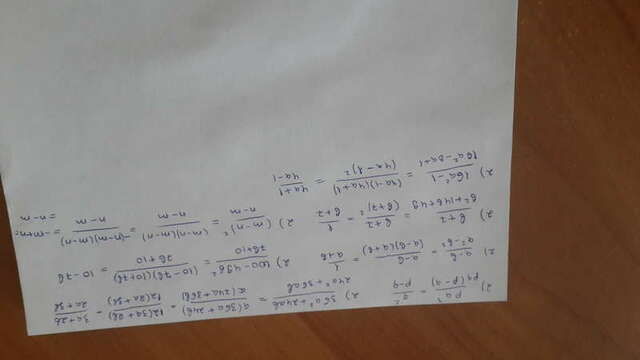 2) pq³/pq(p-q) = q²/p-q 2) 36a²+24ab/24a²+36ab = a(36a+24b)/a(24a+36b) = 12(3a+2b)/12(2a+3b) = 3a+2b/2a+3b
2) a-b/a²-b² = a-b/(a-b)(a+b) = 1/a+b 2) 100-49b²/7b+10 = (10-7b)(10+7b)/7b+10 = 10-7b
2) b+7/b²+14b+49 = b+7/(b+7)² = 1/b+7 2) (m-n)²/n-m = (m-n)(m-n)/n-m = -(n-m)(m-n)/n-m = -m+n=
= n-m
2) 16a²-1/16a²-8a+1 = (4a-1)(4a+1)/(4a-1)² = 4a+1/4a-1